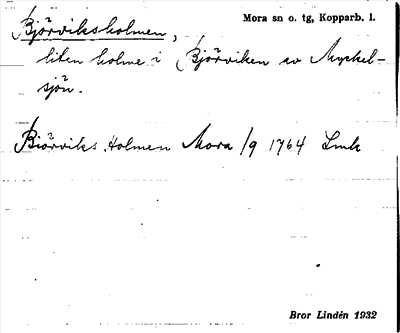 Mora sn o. tg, Kopparb. l.
Björviksholmen,
liten holme i Björviken av Myckel-
sjön.
Biörviks Holmen Mora 1/9 1764 Lmk
Bror Lindén 1932